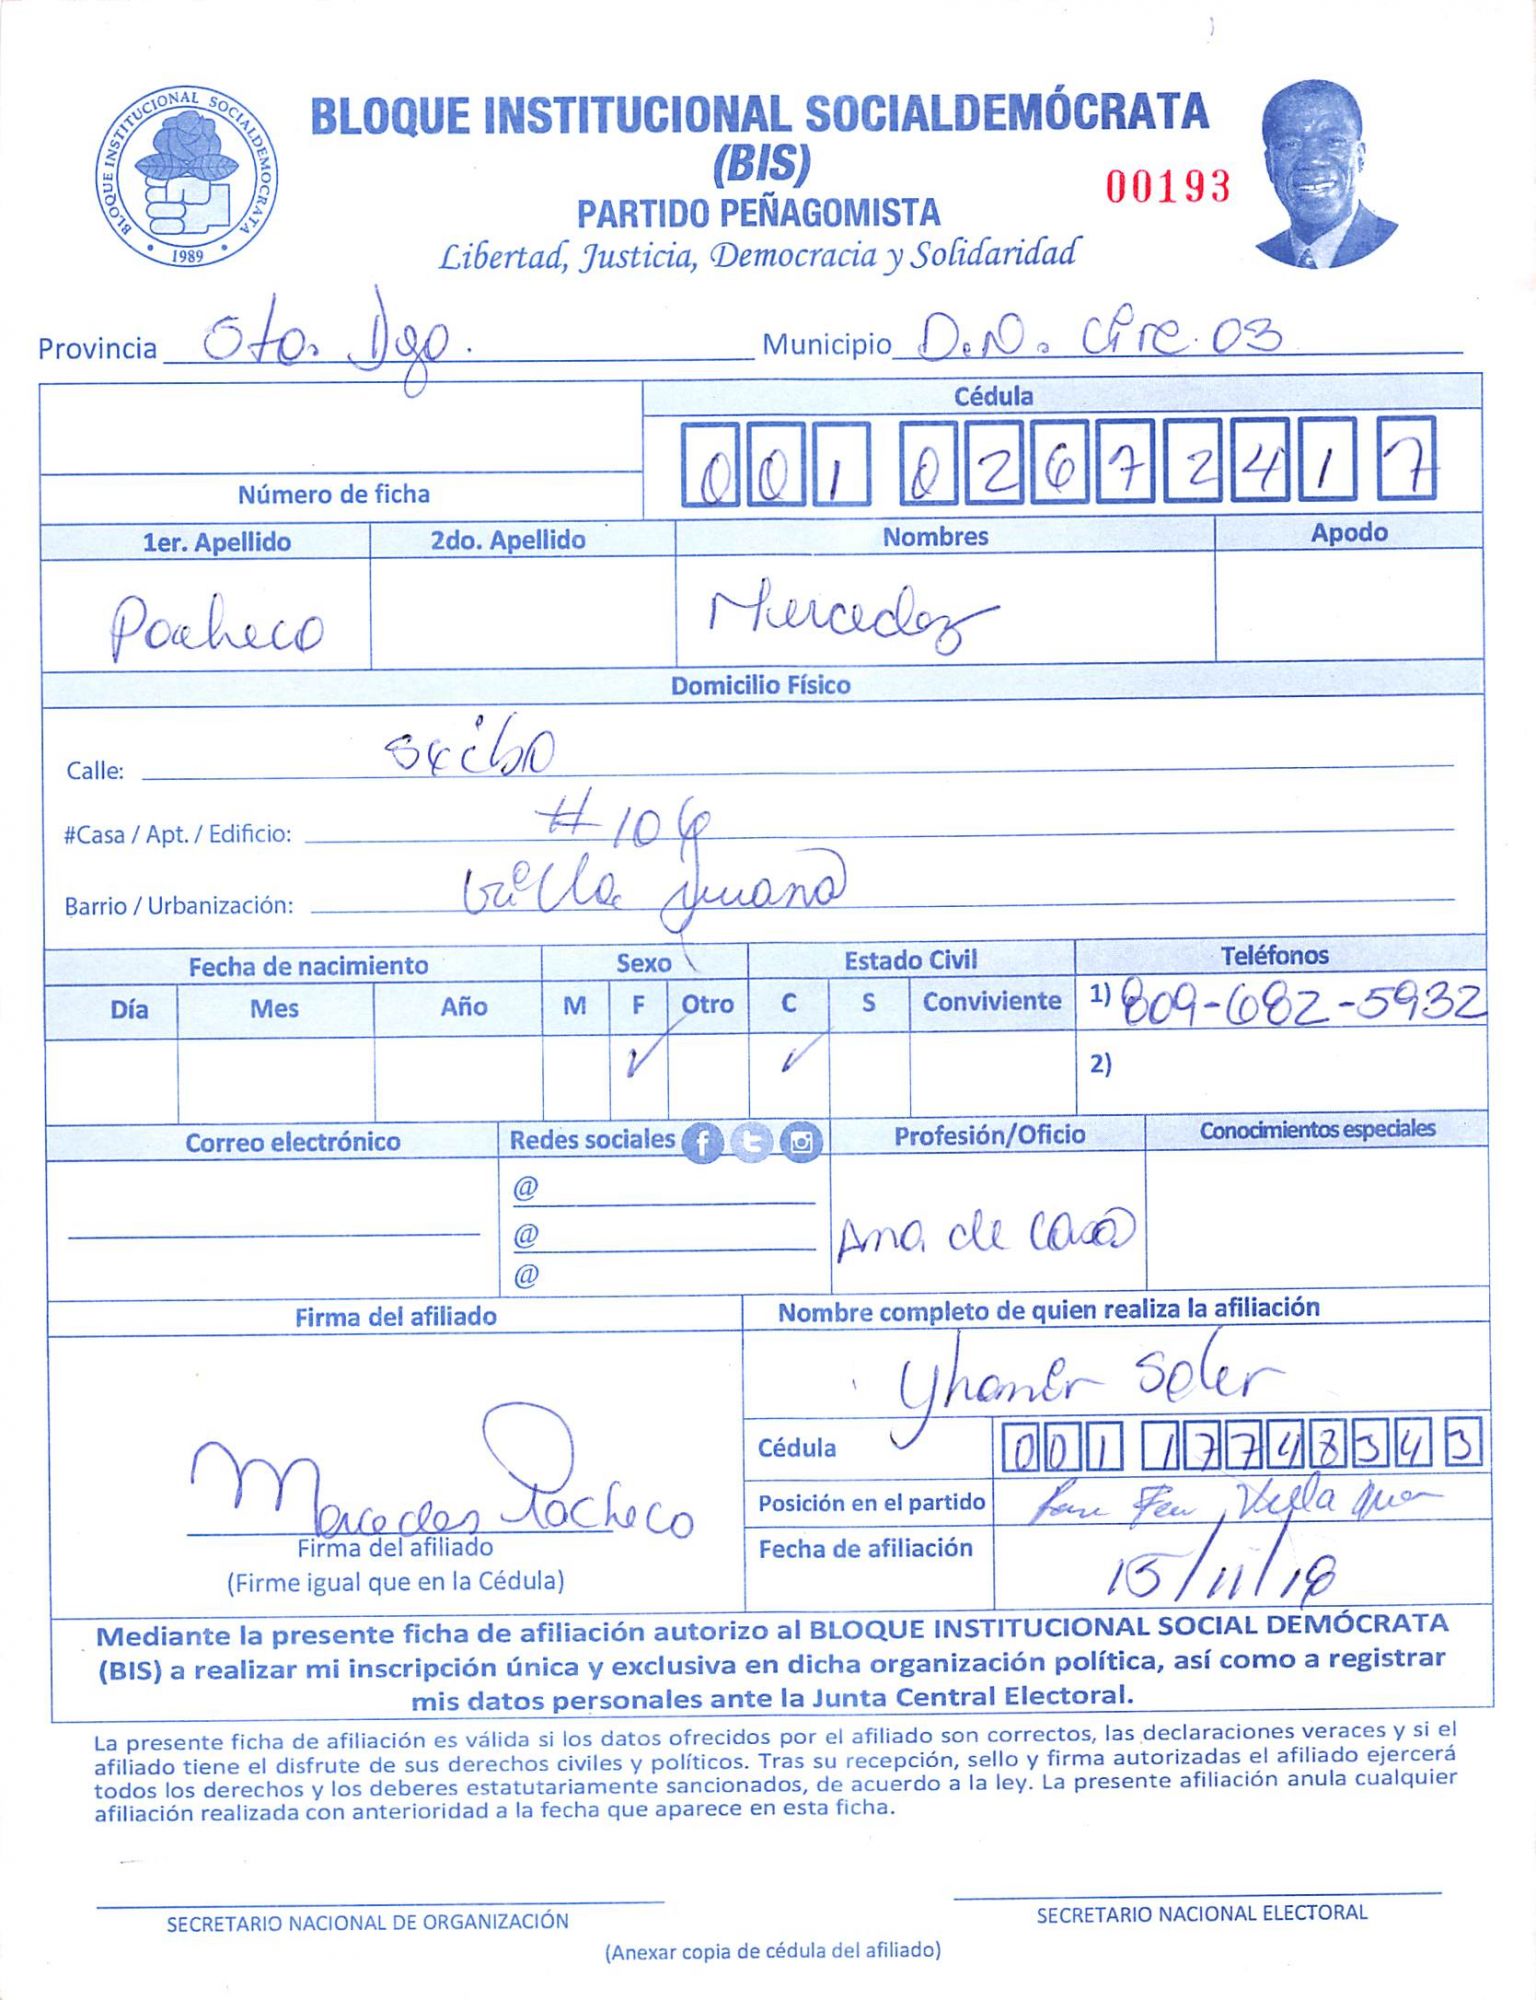 BLOQUE INSTITUCIONAL SOCIALDEMOCRATA
1989
BLOQUE INSTITUCIONAL SOCIALDEMÓCRATA
(BIS)
00193
PARTIDO PEÑAGOMISTA
Libertad, Justicia, Democracia y Solidaridad
Provincia Sto. Dgo. Municipio D.N. Circ. 03
Cédula
001 0267241 7
Número de ficha
1er. Apellido 2do. Apellido Nombres Apodo
Pacheco Mercedez
Domicilio Físico
Calle: Seibo
#Casa / Apt. / Edificio: #106
Barrio / Urbanización: Villa Juana
Fecha de nacimiento Sexo Estado Civil Teléfonos
Día Mes Año M F Otro C S Conviviente 1) 809-682-5932
✓ ✓ 2)
Correo electrónico Redes sociales Profesión/Oficio Conocimientos especiales
@
@ Ama de casa
@
Firma del afiliado Nombre completo de quien realiza la afiliación
Yhomer Soler
Cédula 001 1774834 3
Mercedes Pacheco
Posición en el partido Villa
Firma del afiliado
Fecha de afiliación 15/11/18
(Firme igual que en la Cédula)
Mediante la presente ficha de afiliación autorizo al BLOQUE INSTITUCIONAL SOCIAL DEMÓCRATA
(BIS) a realizar mi inscripción única y exclusiva en dicha organización política, así como a registrar
mis datos personales ante la Junta Central Electoral.
La presente ficha de afiliación es válida si los datos ofrecidos por el afiliado son correctos, las declaraciones veraces y si el
afiliado tiene el disfrute de sus derechos civiles y políticos. Tras su recepción, sello y firma autorizadas el afiliado ejercerá
todos los derechos y los deberes estatutariamente sancionados, de acuerdo a la ley. La presente afiliación anula cualquier
afiliación realizada con anterioridad a la fecha que aparece en esta ficha.
SECRETARIO NACIONAL DE ORGANIZACIÓN SECRETARIO NACIONAL ELECTORAL
(Anexar copia de cédula del afiliado)